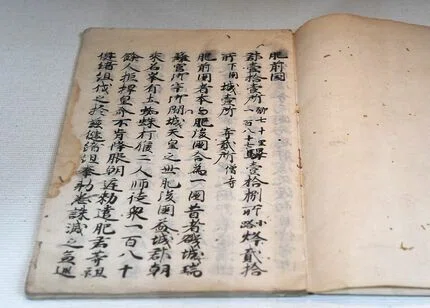 肥前國
郡壹拾壹所郷七十里一百八十七驛壹拾捌所小路烽貳拾
所下國城壹所寺貳所僧寺
肥前國者本與肥後國合為一國昔者磯城瑞
籬宮御宇御間城天皇之世肥後國益城郡朝
来名峯有土蜘蛛打猴二人師徒衆一百八十
餘人拒捍皇命不肯降服朝廷勅遣肥君等祖
健緒組伐之於茲健緒組奉勅悉誅滅之兼巡